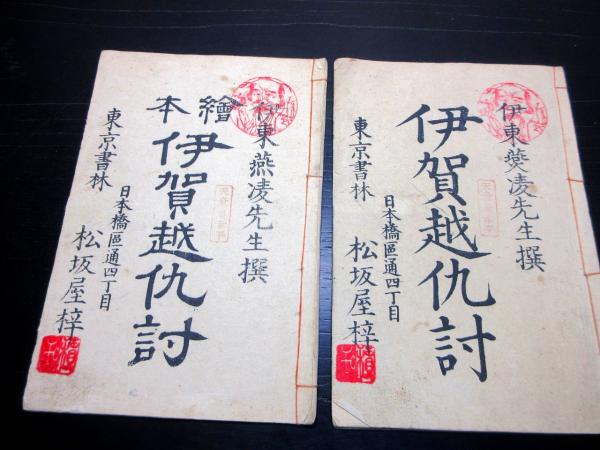 繪本
伊東燕凌先生撰
伊賀越仇討
東京書林
日本橋區通四丁目
松坂屋梓
伊東燕凌先生撰
伊賀越仇討
東京書林
日本橋區通四丁目
松坂屋梓